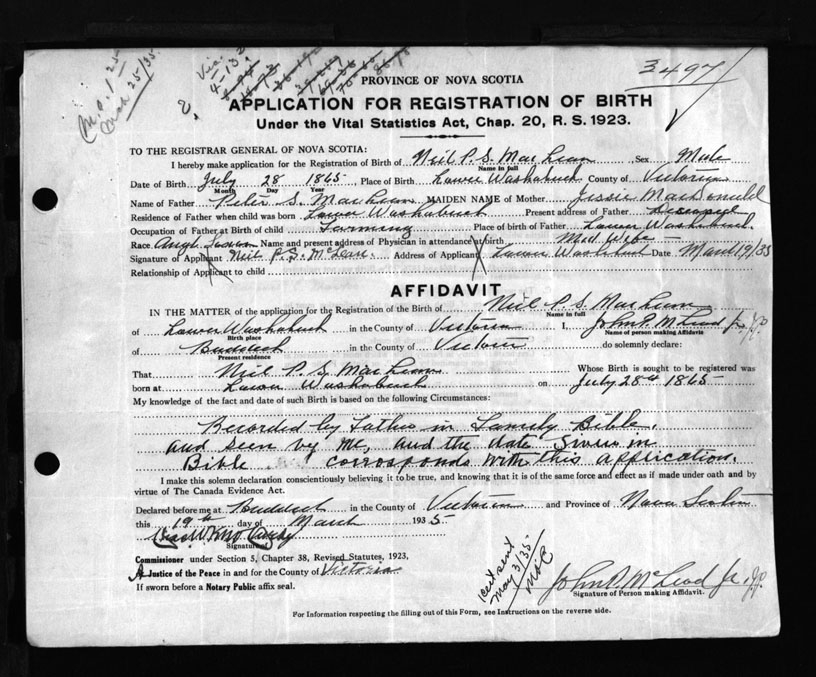 M.O. 1 25
Mch 25/35
Via.
4-132
3497
PROVINCE OF NOVA SCOTIA
APPLICATION FOR REGISTRATION OF BIRTH
Under the Vital Statistics Act, Chap. 20, R. S. 1923.
TO THE REGISTRAR GENERAL OF NOVA SCOTIA:
I hereby make application for the Registration of Birth of Neil P. S. MacLean Sex Male
Name in full
Date of Birth July 28 1865 Place of Birth Lower Washabuck County of Victoria
Month Day Year
Name of Father Peter S. MacLean MAIDEN NAME of Mother Jessie MacDonald
Residence of Father when child was born Lower Washabuck Present address of Father Deceased
Occupation of Father at Birth of child Farming Place of birth of Father Lower Washabuck.
Race Angl Saxon Name and present address of Physician in attendance at birth Mid Wife
Signature of Applicant Neil P.S. McLean. Address of Applicant Lower Washabuck Date March 19/35
Relationship of Applicant to child
AFFIDAVIT
IN THE MATTER of the application for the Registration of the Birth of Neil P. S. MacLean
Name in full
of Lower Washabuck in the County of Victoria I, John P. McLeod Jr. J.P.
Birth place Name of person making Affidavit
of Baddeck in the County of Victoria do solemnly declare:
Present residence
That Neil P. S. MacLean Whose Birth is sought to be registered was
born at Lower Washabuck on July 28th 1865
My knowledge of the fact and date of such Birth is based on the following Circumstances:
Recorded by Father in Family Bible.
and seen by me, and the date given in
Bible corresponds with this application.
I make this solemn declaration conscientiously believing it to be true, and knowing that it is of the same force and effect as if made under oath and by
virtue of The Canada Evidence Act.
Declared before me at Baddeck in the County of Victoria and Province of Nova Scotia
this 19th day of March 1935
Signature
Commissioner under Section 5, Chapter 38, Revised Statutes, 1923,
A Justice of the Peace in and for the County of Victoria
If sworn before a Notary Public affix seal.
Cert sent
May 3/35
John P. McLeod Jr. J.P.
Signature of Person making Affidavit.
For Information respecting the filling out of this Form, see Instructions on the reverse side.